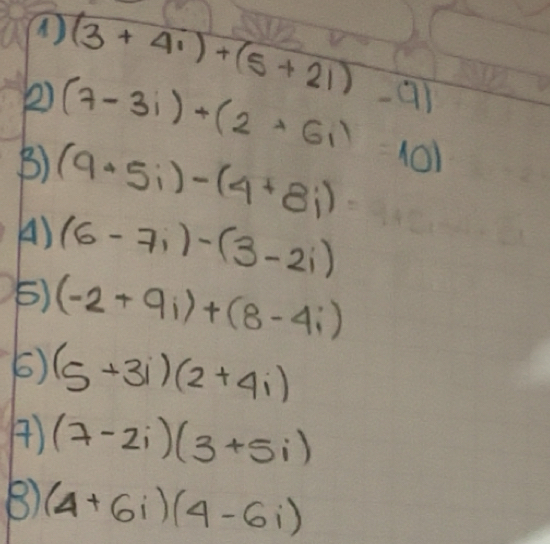 1) (3 + 4i) + (5 + 2i)
2) (7 - 3i) + (2 + 6i)
3) (9 + 5i) - (4 + 8i) =
4) (6 - 7i) - (3 - 2i)
5) (-2 + 9i) + (8 - 4i)
6) (5 + 3i)(2 + 4i)
7) (7 - 2i)(3 + 5i)
8) (4 + 6i)(4 - 6i)
9)
10)